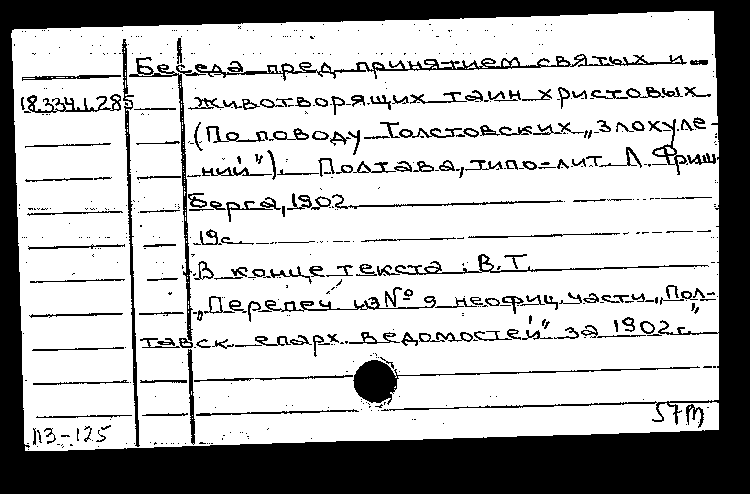 Беседа пред принятием святых и
18.334.1.285 животворящих таин христовых.
(По поводу Толстовских „злохуле-
ний"). Полтава, типо-лит. Л. Фриш
берга, 1902.
19с.
В конце текста: В.Т.
„Перепеч из № 9 неофиц. части „Пол-
тавск. епарх. ведомостей" за 1902 г."
57М
ПЗ-125